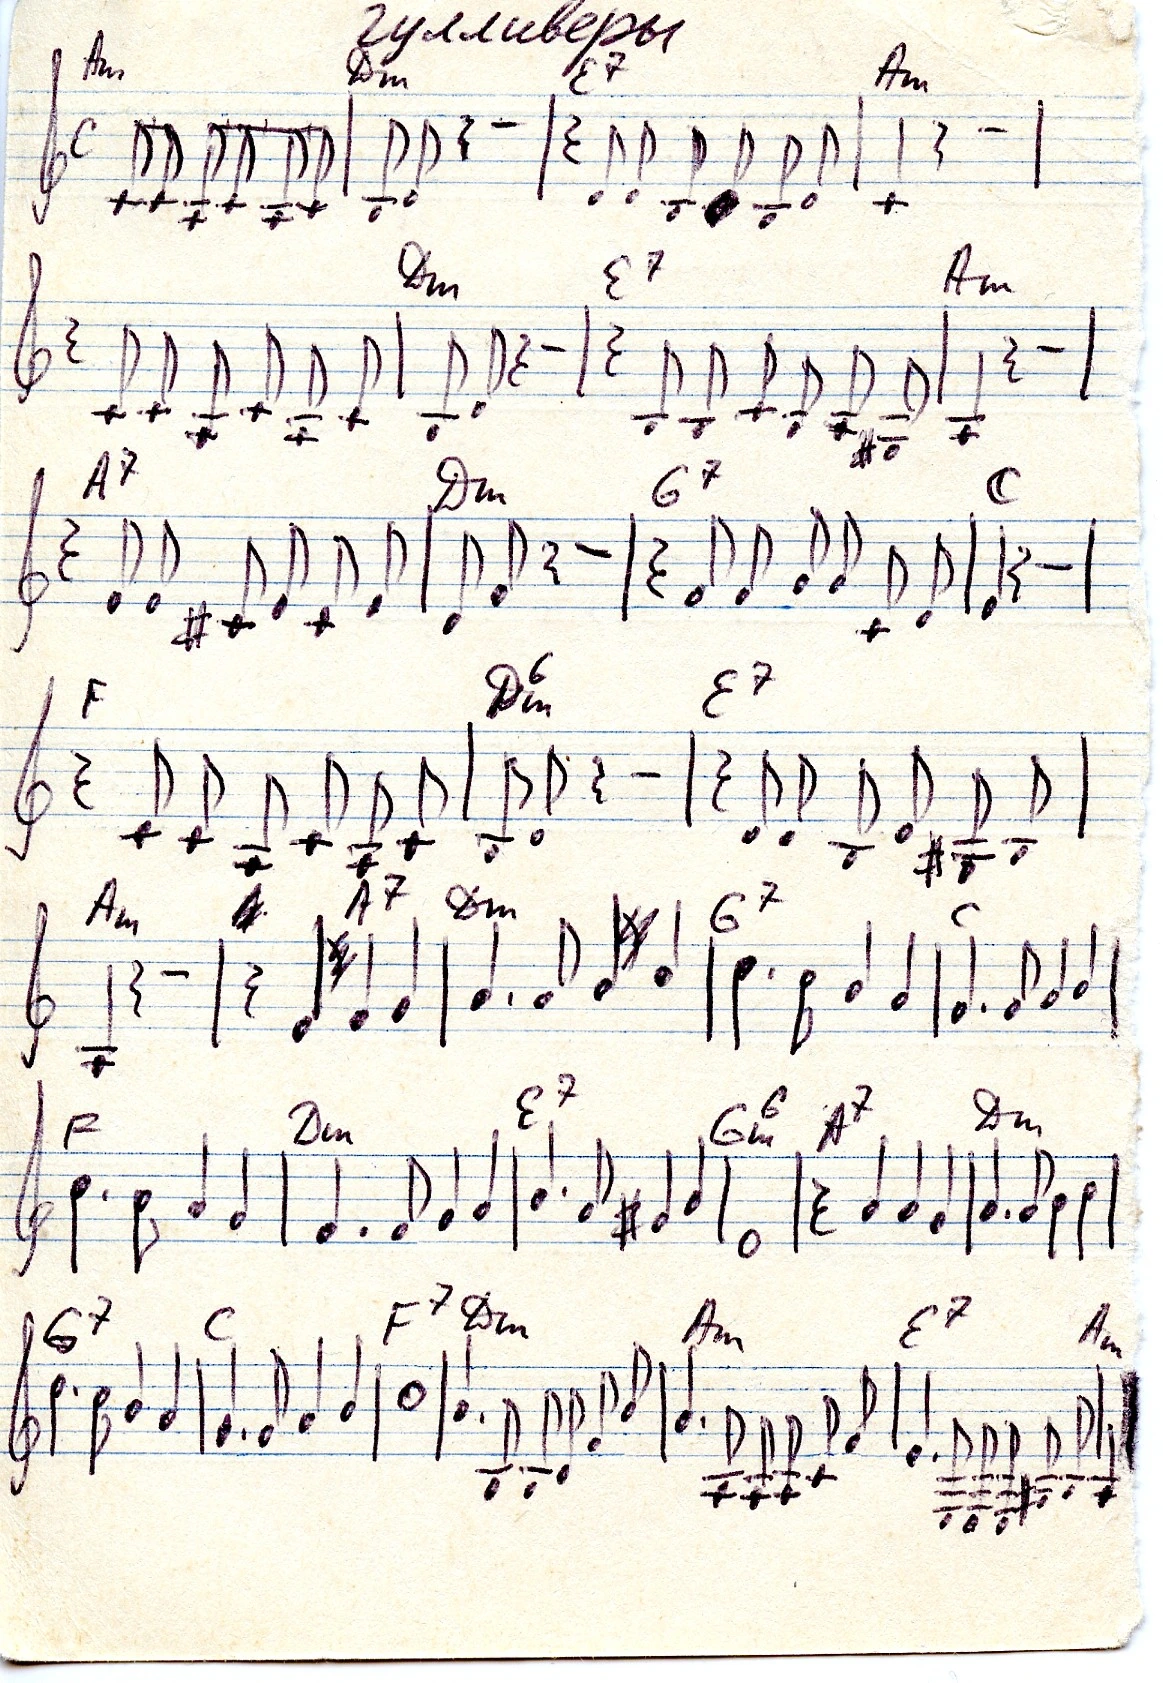 гулливеры
Am Dm E7 Am
C
Dm E7 Am
A7 Dm G7 C
F Dm6 E7
Am A7 Dm G7 C
F Dm E7 Gm6 A7 Dm
G7 C F7 Dm Am E7 Am